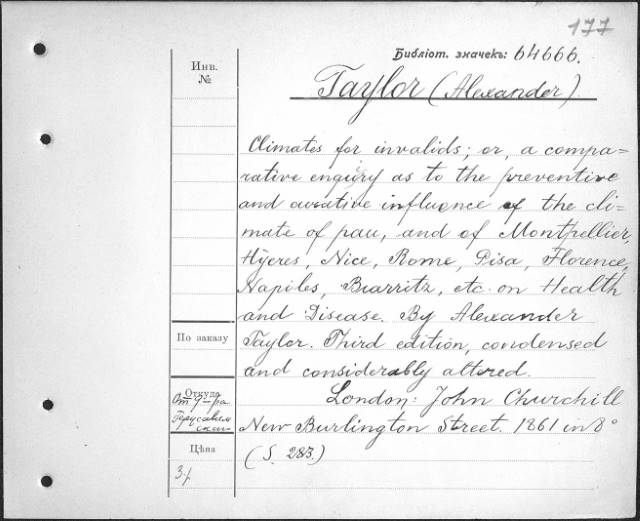 177
Библіот. значекъ: 64666.
Инв.
№
Taylor (Alexander).
Climates for invalids; or, a compa-
rative enquiry as to the preventive
and curative influence of the cli-
mate of pau, and of Montpellier,
Hyeres, Nice, Rome, Pisa, Florence,
Napiles, Biarritz, etc. on Health
and Disease. By Alexander
Taylor. Third edition, condensed
and considerably altered.
London: John Churchill
New Burlington Street. 1861 in 8°
(S. 283.)
По заказу
Откуда
Цѣна